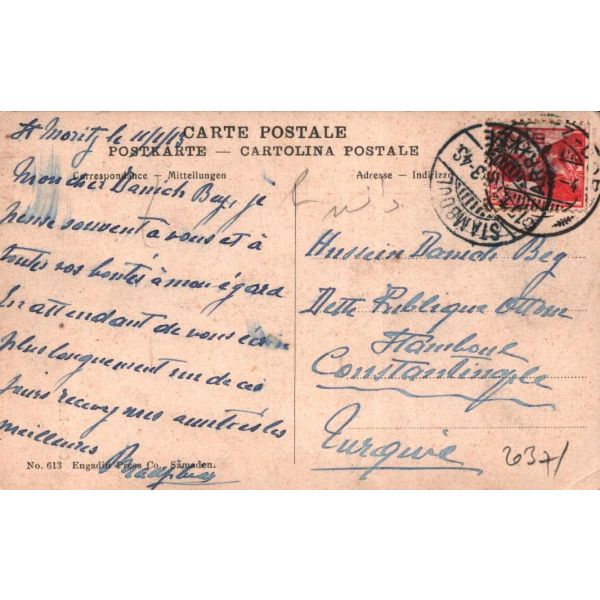 St Moritz le 11/1/13
CARTE POSTALE
POSTKARTE – CARTOLINA POSTALE
Correspondance – Mitteilungen
Adresse – Indirizzo
Mon cher Danich Bey, je
pense souvent a vous et à
toutes vos bontés à mon égard
En attendant de vous
plus longuement un de ces
jours recevez mes amitiés les
meilleures
Hussein Danich Bey
Dette Publique Ottom
Stamboul
Constantinople
Turquie
STAMBOUL
No. 613 Engadin Press Co., Samaden.
637/